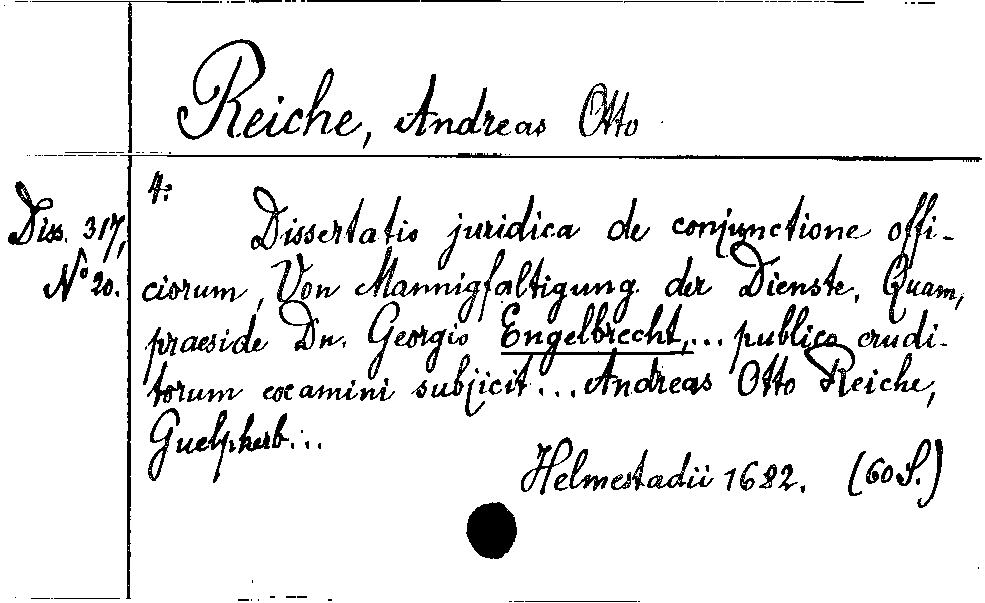 Reiche, Andreas Otto
Diss. 317,
No 20.
4:
Dissertatio juridica de conjunctione offi-
ciorum, Von Mannigfaltigung der Dienste. Quam,
praeside Dn. Georgio Engelbrecht,... publico erudi-
torum examini subjicit... Andreas Otto Reiche,
Guelpherb...
Helmestadii 1682. (60 S.)